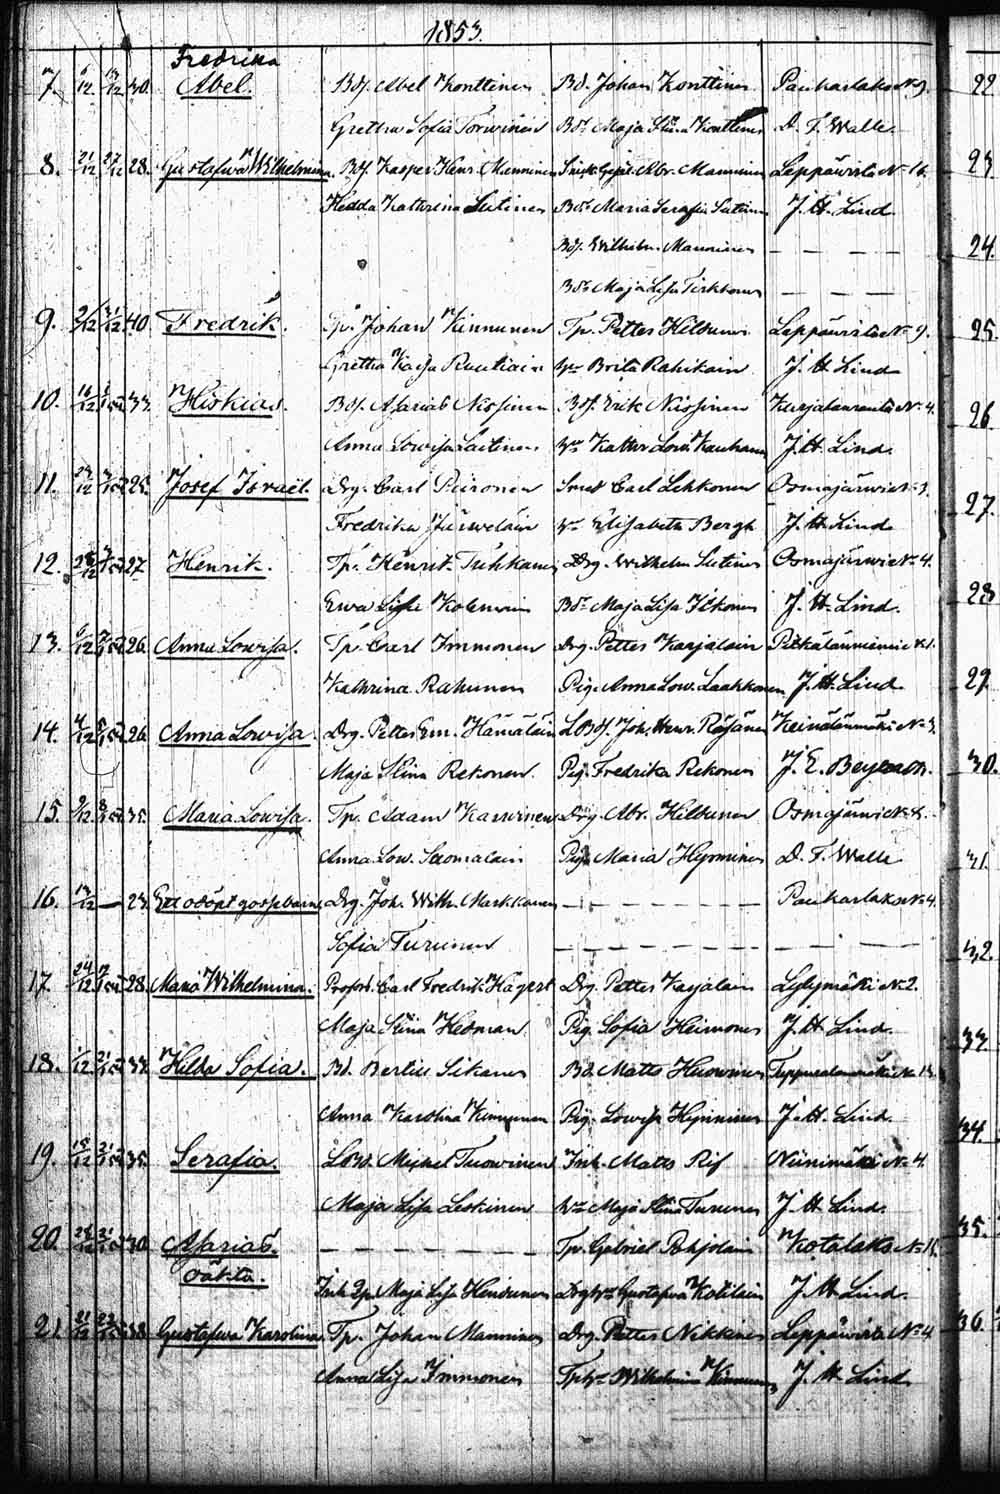 1853.
Fredrika
7. 6/12 13/12 30. Abel. Bds. Abel Konttinen Bd. Johan Konttinen Paukarlaks No 9.
Gretha Sofia Torwinen Bdr Maja Stina Konttinen D. F. Walle.
8. 21/12 27/12 28. Gustafwa Wilhelmina. Bds. Kasper Henr. Manninen Abr. Manninen Leppäwirta No 16.
Hedda Katarina Sutinen Bdr Maria Serafia Sutinen J. H. Lind
Bds. Wilhelm Manninen — — — —
Bdr Maja Lisa Tirkkonen — — —
9. 2/12 31/12 40. Fredrik. Tp. Johan Kinnunen Tp. Petter Hiltunen Leppäwirta No 9.
Gretha Kaisa Ruutiain Hu Brita Rahikain J. H. Lind
10. 16/12 33. Hiskias. Bds. Asarias Nissinen Bds. Erik Nissinen Kurjalanranta No 4.
Anna Lowisa Laitinen Hu Kathr. Lowis. Kauhanen J. H. Lind.
11. 25. Josef Israel. Drg. Carl Piironen Smed Carl Lehkonen Osmajärwi No 3.
Fredrika Järweläin Hu Elisabeth Bergh J. H. Lind
12. 27 Henrik. Tp. Henrik Tuhkanen Drg. Wilhelm Sutinen Osmajärwi No 4.
Ewa Lisa Kolemain Bdr Maja Lisa Itkonen J. H. Lind.
13. 26. Anna Lowisa. Tp. Carl Immonen Drg. Petter Karjalain Pitkälänniemi No 1.
Kathrina Rahunen Pig. Anna Low. Laakkonen J. H. Lind
14. 26. Anna Lowisa. Drg. Petter Em. Hämäläin LBds. Joh. Henr. Räsänen Keinälänmäki No 3.
Maja Stina Rekonen. Pig. Fredrika Rekonen J. E. Beyerath.
15. 9/12 35. Maria Lowisa. Tp. Adam Karwinen Drg. Abr. Hiltunen Osmajärwi No 4.
Anna Low. Suomalain Pig. Maria Hyyminen D. F. Walle
16. 13/12 — 23. Ett odöpt gossebarn. Drg. Joh. Wilh. Markkanen — — — — — Paukarlaks No 4.
Sofia Turunen — — — — — — — —
17. 24/12 28. Maria Wilhelmina. Carl Fredrik Hägert Drg. Petter Karjalain Lylymäki No 2.
Maja Stina Hedman Pig. Sofia Heimonen J. H. Lind.
18. 1/12 33. Hilda Sofia. Bd. Bertil Sikanen Bd. Matts Huowinen
Anna Karolina Kinnunen Pig. Lowisa Hyninen J. H. Lind.
19. 15/12 35. Serafia. Mickel Tuowinen Inh. Matts Rif Niinimäki No 4.
Maja Lisa Leskinen Hu Maja Stina Turunen J. H. Lind.
20. 30. Asarias. — — — — — Tp. Gabriel Pohjolain Kotalaks No 11.
oäkta. Inh. Qp. Maja Lisa Hendunen Gustafwa Kotilain J. H. Lind.
21. 21/12 38. Gustafwa Karolina. Tp. Johan Manninen Drg. Petter Nikkinen Leppäwirta No 4.
Anna Lisa Immonen Wilhelmina Kinnunen J. H. Lind
22.
23.
24.
25.
26.
27.
28.
29.
30.
31.
32.
33.
34.
35.
36.